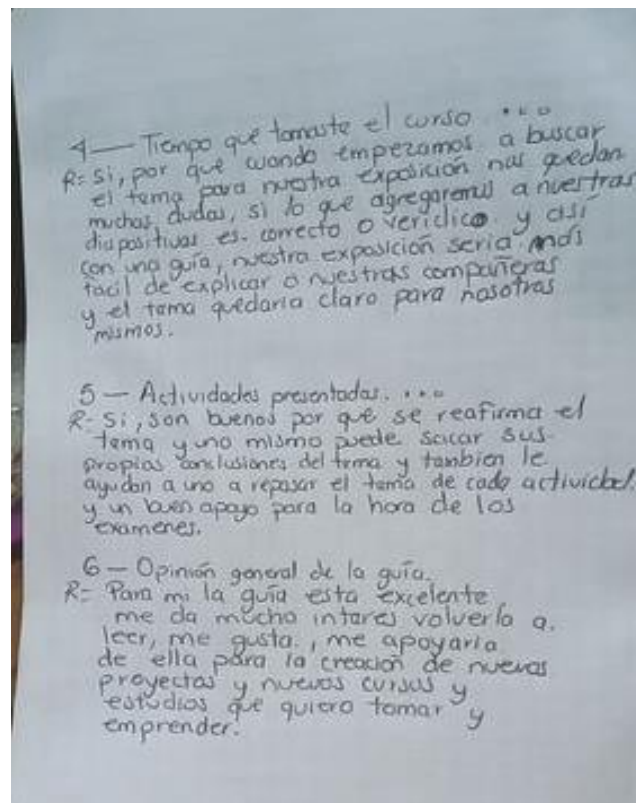 4 — Tiempo que tomaste el curso ....
R= Si, por que cuando empezamos a buscar
el tema para nuestra exposición nos quedan
muchas dudas, si lo que agregaremos a nuestras
diapositivas es. correcto o veridico y así
con una guía, nuestra exposición seria más
facil de explicar a nuestras compañeras
y el tema quedaria claro para nosotras
mismos.
5 — Actividades presentadas. ...
R- Si, son buenos por que se reafirma el
tema y uno mismo puede sacar sus
propias conclusiones del tema y tambien le
ayudan a uno a repasar el tema de cada actividad.
y un buen apoyo para la hora de los
examenes.
6 — Opinión general de la guía.
R= Para mi la guía esta excelente
me da mucho interes volverla a.
leer, me gusta., me apoyaria
de ella para la creación de nuevos
proyectos y nuevos cursos y
estudios que quiero tomar y
emprender.